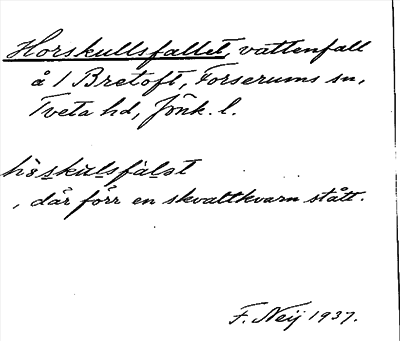 Horskullsfallet, vattenfall
å 1 Bretoft, Forserums sn,
Tveta hd, Jönk. l.
hòskulsfàlət
, där förr en skvaltkvarn stått.
F. Neij 1937.